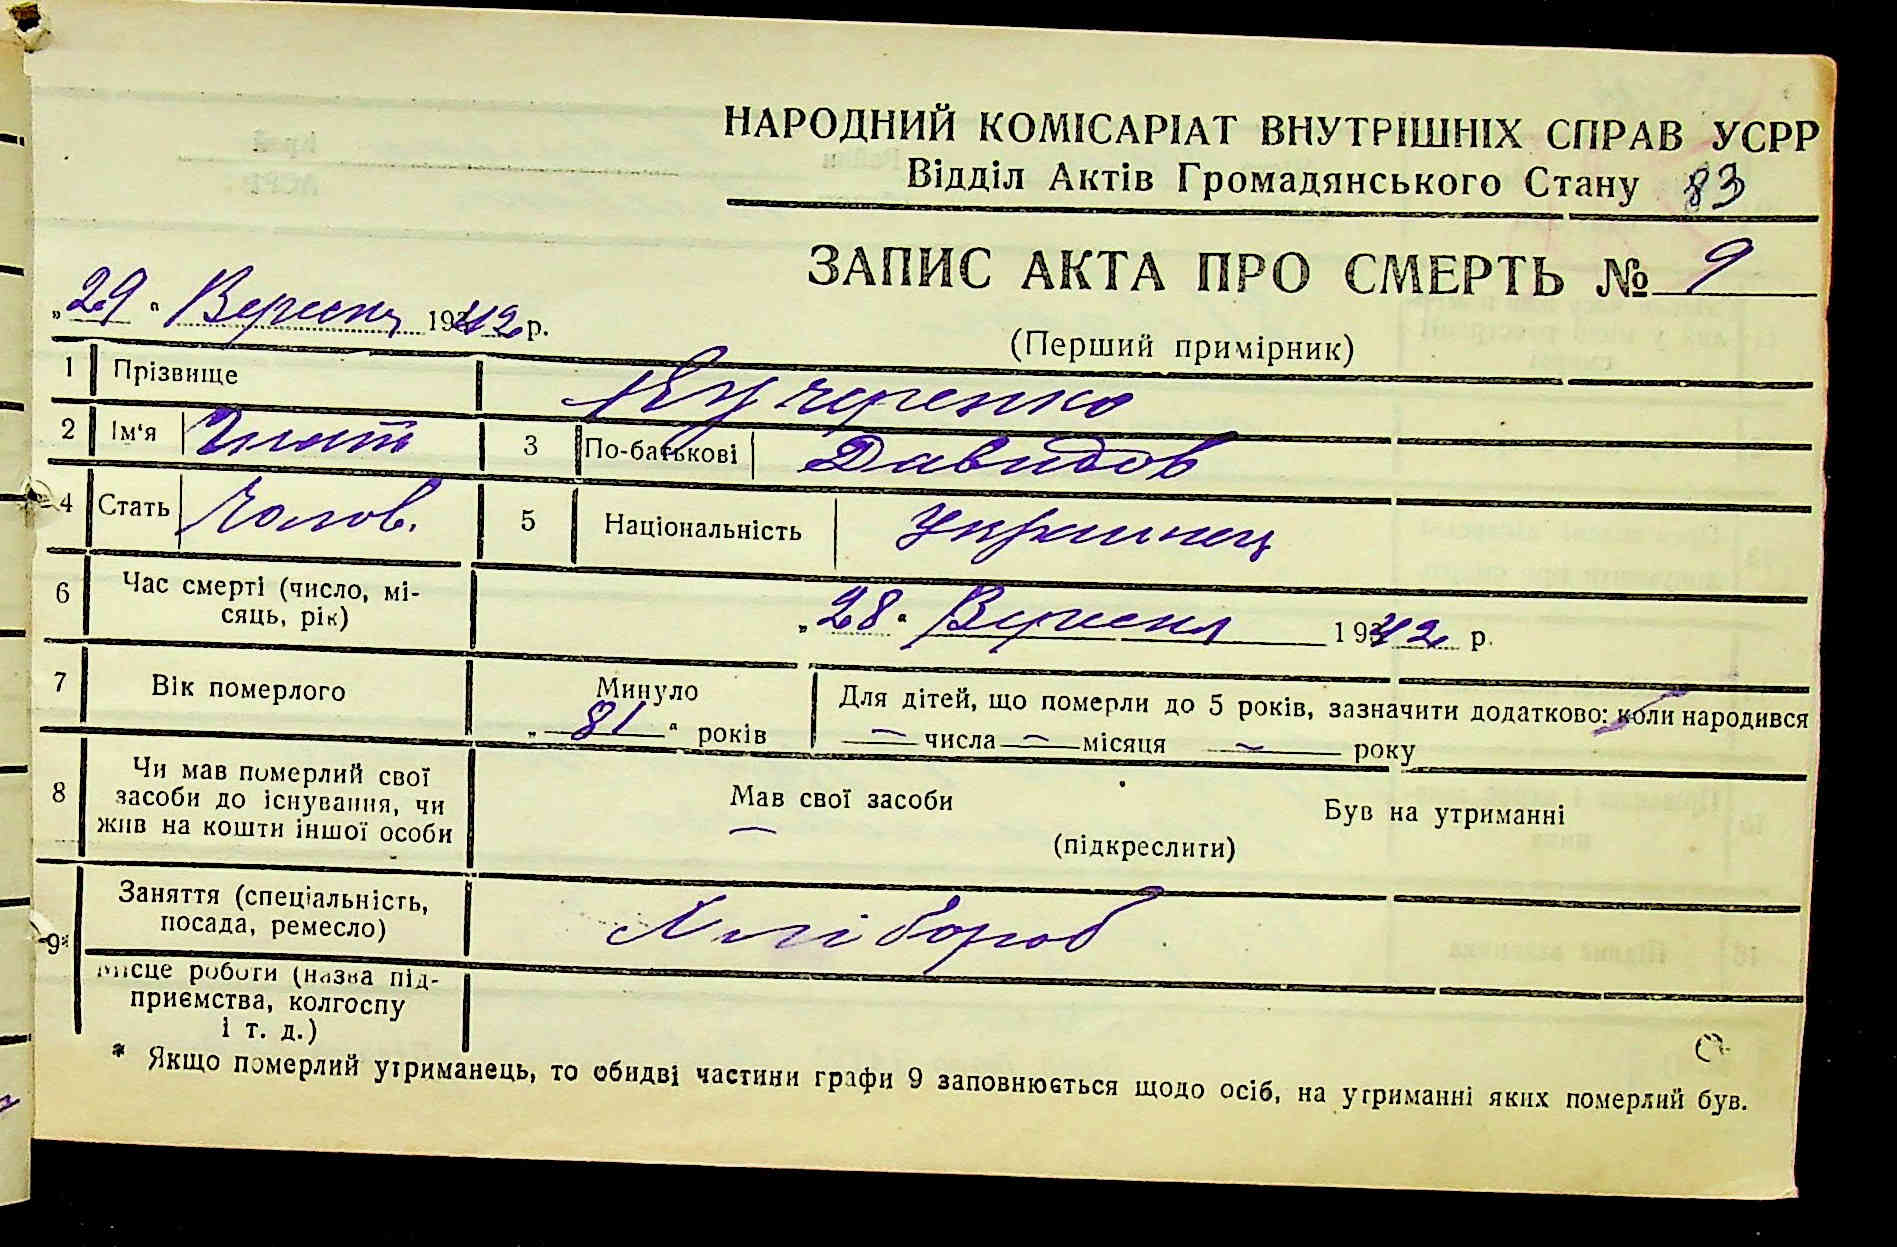 НАРОДНИЙ КОМІСАРІАТ ВНУТРІШНІХ СПРАВ УСРР
Відділ Актів Громадянського Стану 83
ЗАПИС АКТА ПРО СМЕРТЬ № 9
„29“ Вересня 1942 р.
(Перший примірник)
1 Прізвище Кучеренко
2 Ім'я Гнат 3 По-батькові Давидов
4 Стать Чолов. 5 Національність Украинец
6 Час смерті (число, мі-
сяць, рік)
„28“ Вересня 1942 р.
7 Вік померлого
Минуло
„81“ років
Для дітей, що померли до 5 років, зазначити додатково: коли народився
— числа — місяця — року
8 Чи мав померлий свої
засоби до існування, чи
жив на кошти іншої особи
Мав свої засоби
Був на утриманні
(підкреслити)
9* Заняття (спеціальність,
посада, ремесло)
Хлібороб
Місце роботи (назва під-
приємства, колгоспу
і т. д.)
* Якщо померлий утриманець, то обидві частини графи 9 заповнюється щодо осіб, на утриманні яких померлий був.